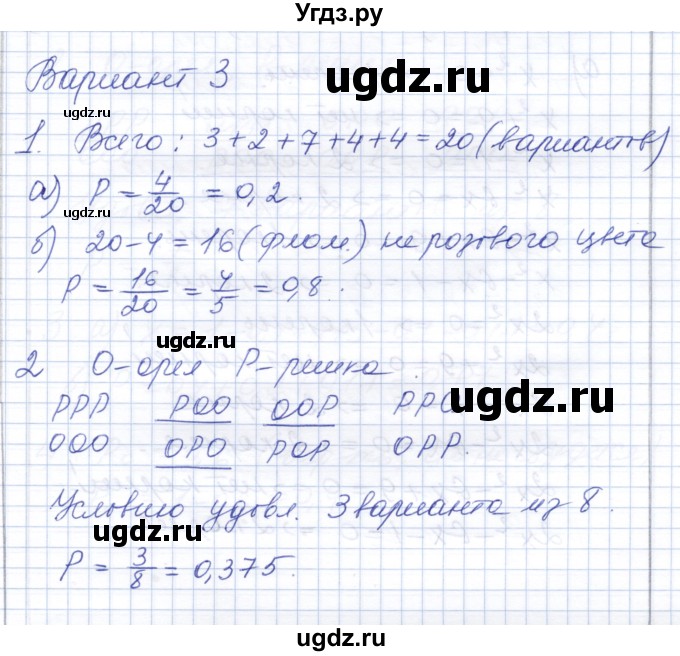 Угдз.ру
Вариант 3
ugdz.ru
ugdz.ru
1. Всего: 3+2+7+4+4=20 (вариантв)
а) P = 4/20 = 0,2.
ugdz.ru
б) 20-4=16 (флом.) не розового цвета
P = 16/20 = 4/5 = 0,8.
ugdz.ru
2 О-орел Р-решка.
ugdz.ru
РРР РОО ООР РРО
ООО ОРО РОР ОРР.
ugdz.ru
Условию удовл. 3 варианта из 8.
ugdz.ru
P = 3/8 = 0,375.
ugdz.ru
ugdz.ru